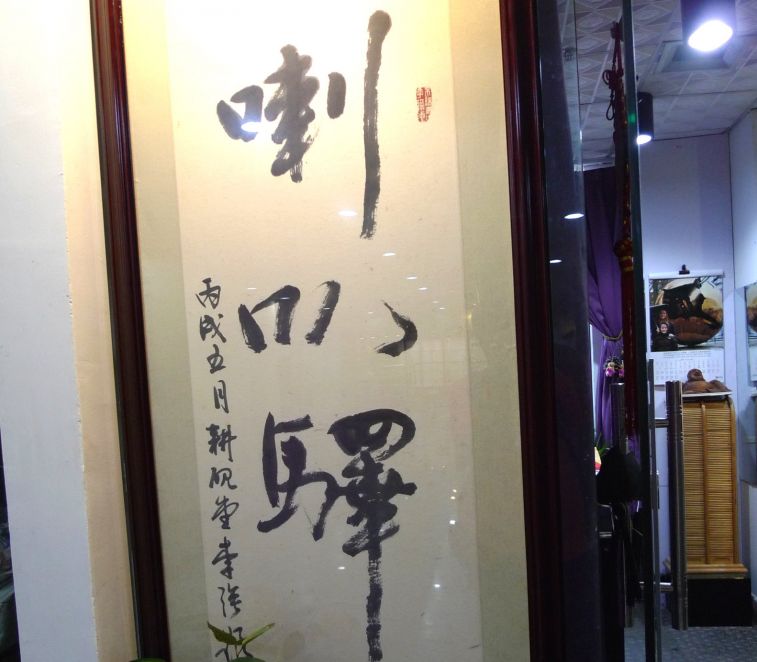 喇叭驿
丙戌五月耕砚堂李强